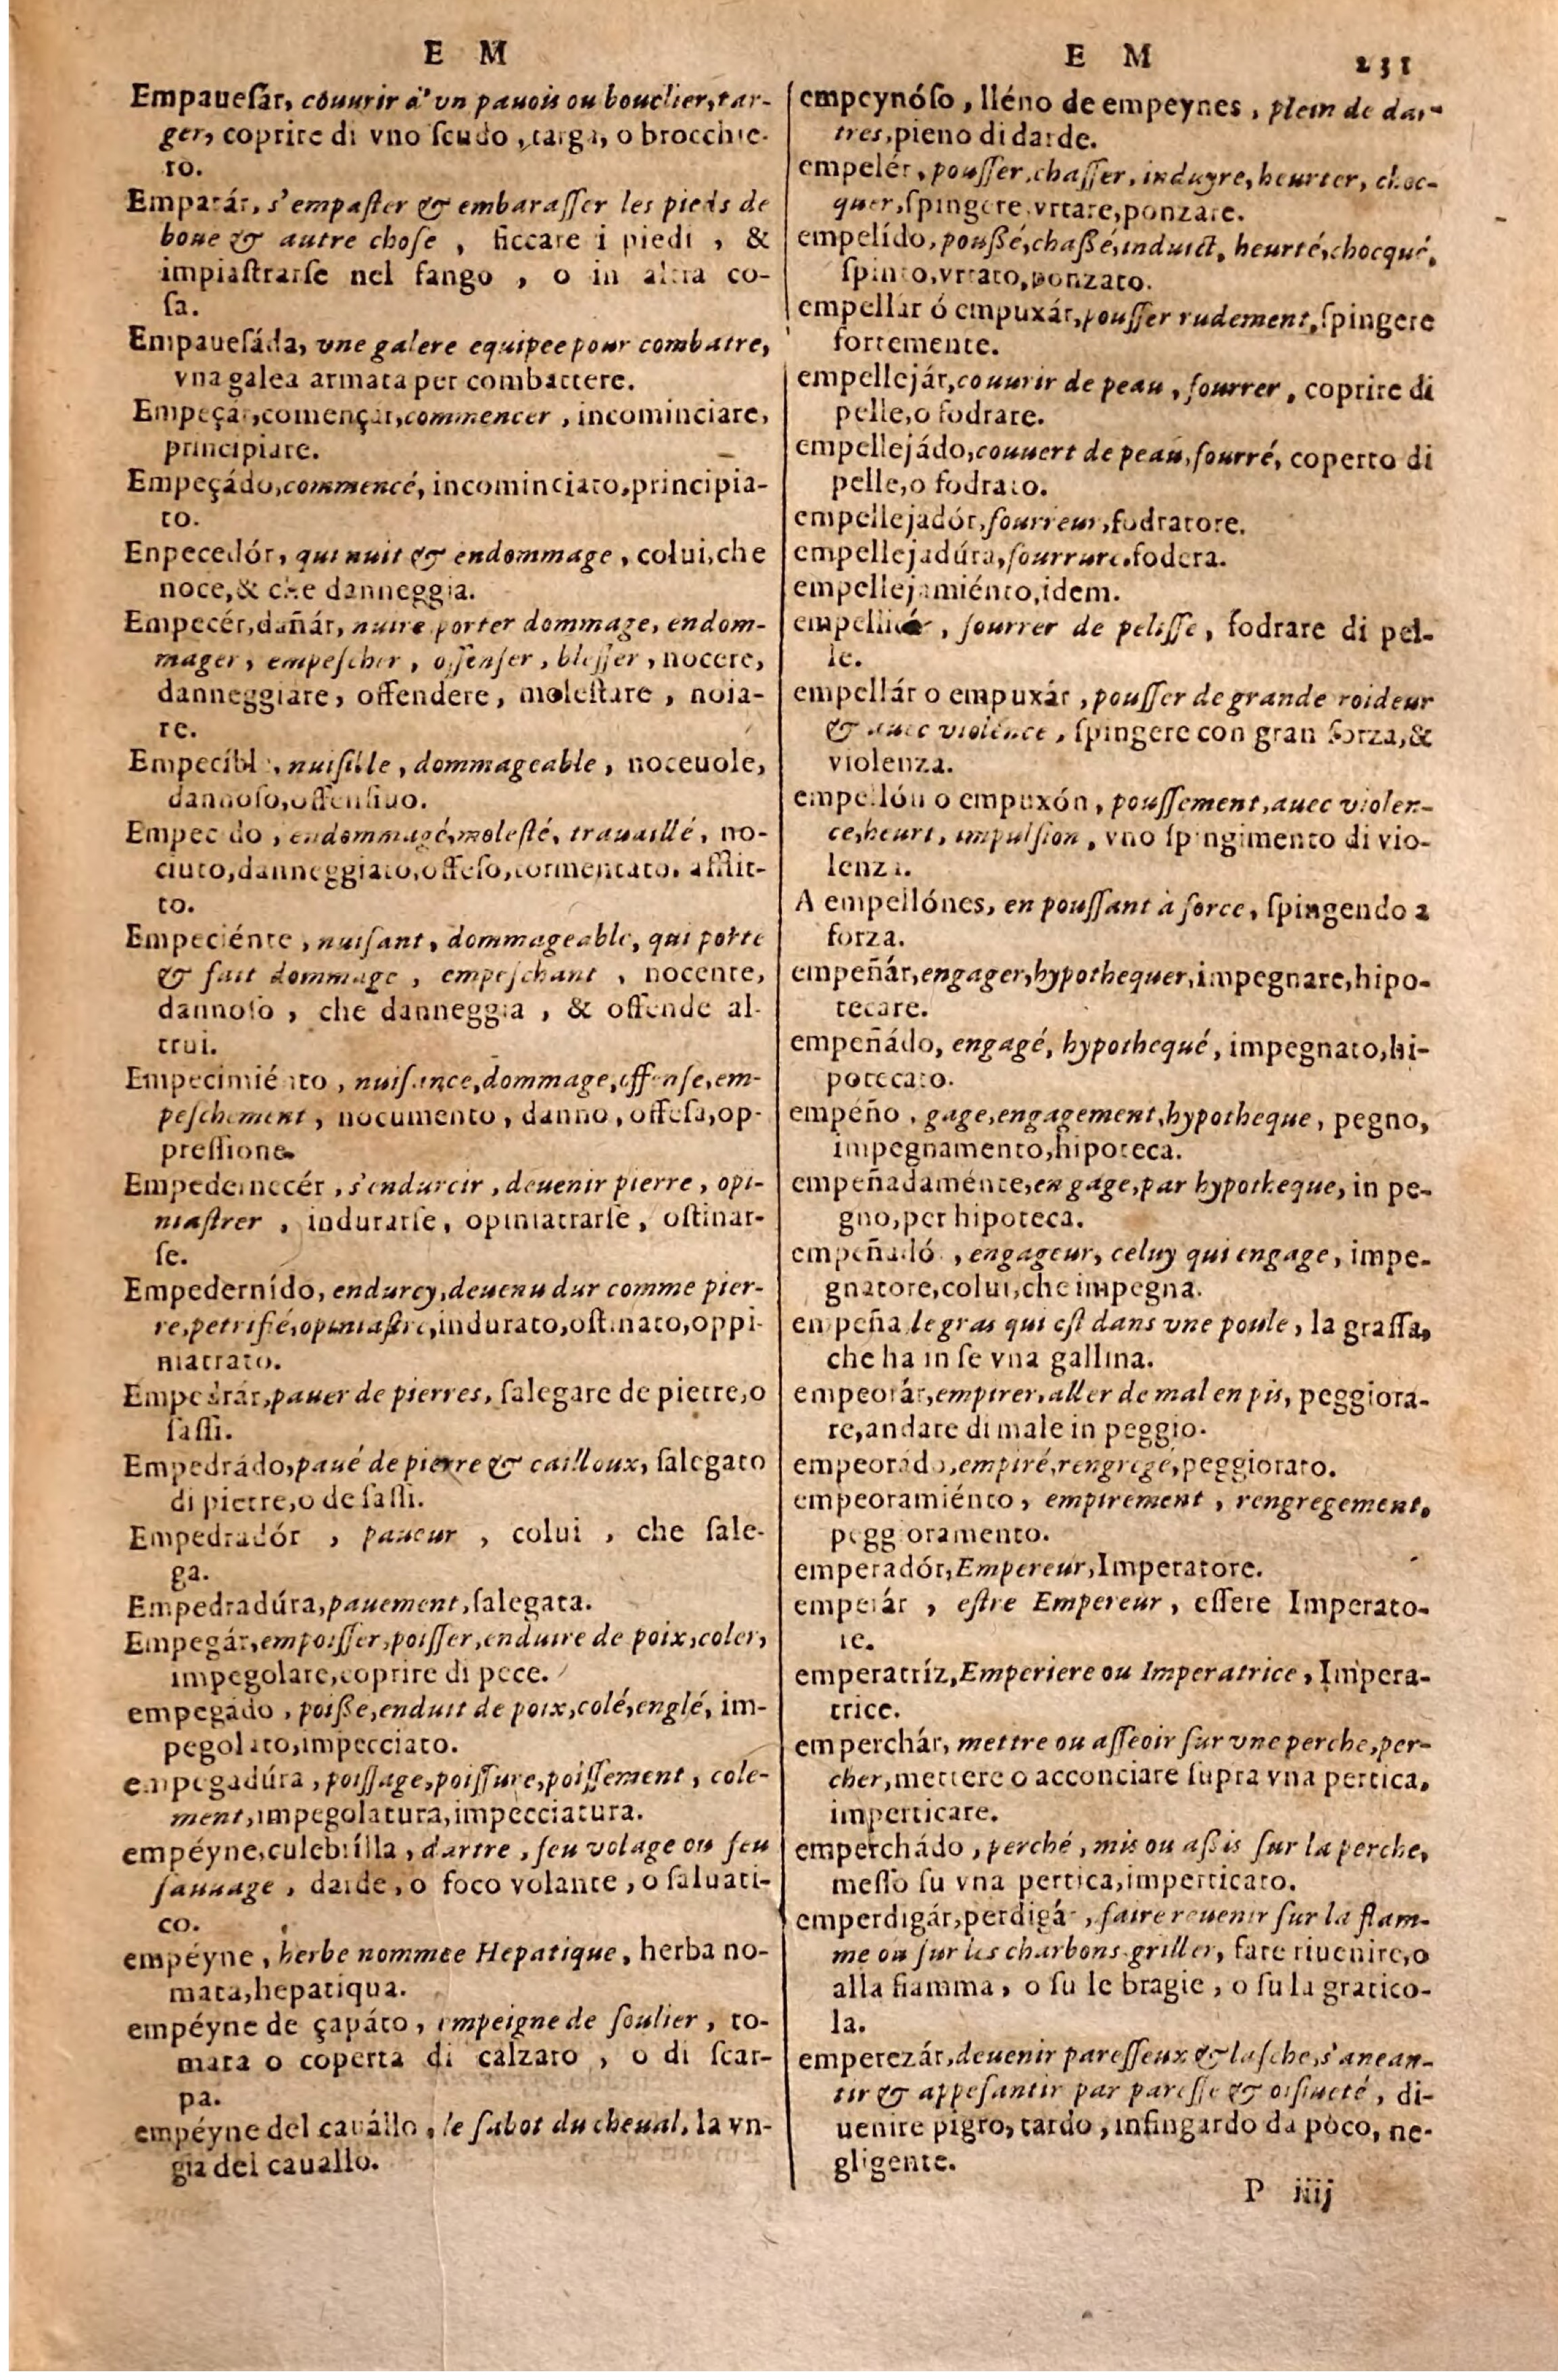 E M
Empauesar, couurir d'vn pauois ou bouclier, tar-
ger, coprire di vno scudo, targa, o brocchie-
ro.
Empatár, s'empaster & embarasser les pieds de
boue & autre chose, ficcare i piedi, &
impiastrarse nel fango, o in altra co-
sa.
Empauesáda, vne galere equipee pour combatre,
vna galea armata per combattere.
Empeçar, començar, commencer, incominciare,
principiare.
Empeçádo, commencé, incominciato, principia-
to.
Enpecedór, qui nuit & endommage, colui, che
noce, & che danneggia.
Empecér, dañár, nuire porter dommage, endom-
mager, empescher, offenser, blesser, nocere,
danneggiare, offendere, molestare, noia-
re.
Empecíbl, nuisible, dommageable, noceuole,
dannoso, offensiuo.
Empec do, endommagé, molesté, trauaillé, no-
ciuto, danneggiato, offeso, tormentato, afflit-
to.
Empeciénte, nuisant, dommageable, qui porte
& fait dommage, empeschant, nocente,
dannoso, che danneggia, & offende al-
trui.
Empecimiénto, nuisance, dommage, offense, em-
peschement, nocumento, danno, offesa, op-
pressione.
Empedernecér, s'endurcir, deuenir pierre, opi-
niastrer, indurarse, opiniatrarse, ostinar-
se.
Empedernído, endurcy, deuenu dur comme pier-
re, petrifié, opiniastre, indurato, ostinato, oppi-
niatrato.
Empedrár, pauer de pierres, salegare de pietre, o
sassi.
Empedrádo, paué de pierre & cailloux, salegato
di pietre, o de sassi.
Empedradór, paueur, colui, che sale-
ga.
Empedradúra, pauement, salegata.
Empegár, empoisser, poisser, enduire de poix, coler,
impegolare, coprire di pece.
empegado, poißé, enduit de poix, colé, englé, im-
pegolato, impecciato.
empegadúra, poissage, poissure, poissement, cole-
ment, impegolatura, impecciatura.
empéyne, culebrilla, dartre, feu volage ou feu
sauuage, darde, o foco volante, o saluati-
co.
empéyne, herbe nommee Hepatique, herba no-
mata, hepatiqua.
empéyne de çapáto, empeigne de soulier, to-
mara o coperta di calzaro, o di scar-
pa.
empéyne del cauállo, le sabot du cheual, la vn-
gia del cauallo.
E M 231
empeynóso, lléno de empeynes, plein de dar-
tres, pieno di darde.
empelér, pousser, chasser, induyre, heurter, choc-
quer, spingere, vrtare, ponzare.
empelído, poußé, chaßé, induict, heurté, chocqué,
spinto, vrtato, ponzato.
empellar ó empuxár, pousser rudement, spingere
fortemente.
empellejár, couurir de peau, fourrer, coprire di
pelle, o fodrare.
empellejádo, couuert de peau, fourré, coperto di
pelle, o fodrato.
empellejadór, fourreur, fodratore.
empellejadúra, fourrure, fodera.
empellejamiénto, idem.
empellicár, fourrer de pelisse, fodrare di pel-
le.
empellár o empuxár, pousser de grande roideur
& auec violence, spingere con gran forza, &
violenza.
empellón o empuxón, poussement, auec violen-
ce, heurt, impulsion, vno spingimento di vio-
lenza.
A empellónes, en poussant à force, spingendo a
forza.
empeñár, engager, hypothequer, impegnare, hipo-
tecare.
empeñádo, engagé, hypothequé, impegnato, hi-
potecato.
empéño, gage, engagement, hypotheque, pegno,
impegnamento, hipoteca.
empeñadaménte, en gage, par hypotheque, in pe-
gno, per hipoteca.
empeñadó, engageur, celuy qui engage, impe-
gnatore, colui, che impegna.
enpeña, le gras qui est dans vne poule, la grassa,
che ha in se vna gallina.
empeorár, empirer, aller de mal en pis, peggiora-
re, andare di male in peggio.
empeorádo, empiré, rengregé, peggiorato.
empeoramiénto, empirement, rengregement,
peggioramento.
emperadór, Empereur, Imperatore.
emperár, estre Empereur, essere Imperato-
re.
emperatríz, Emperiere ou Imperatrice, Impera-
trice.
emperchár, mettre ou asseoir sur vne perche, per-
cher, mettere o acconciare supra vna pertica,
imperticare.
emperchádo, perché, mis ou aßis sur la perche,
messo su vna pertica, imperticato.
emperdigár, perdigár, faire reuenir sur la flam-
me ou sur les charbons griller, fare riuenire, o
alla fiamma, o su le bragie, o su la gratico-
la.
emperezár, deuenir paresseux & lasche, s'anean-
tir & appesantir par paresse & oisiueté, di-
uenire pigro, tardo, infingardo da pòco, ne-
gligente.
P iiij